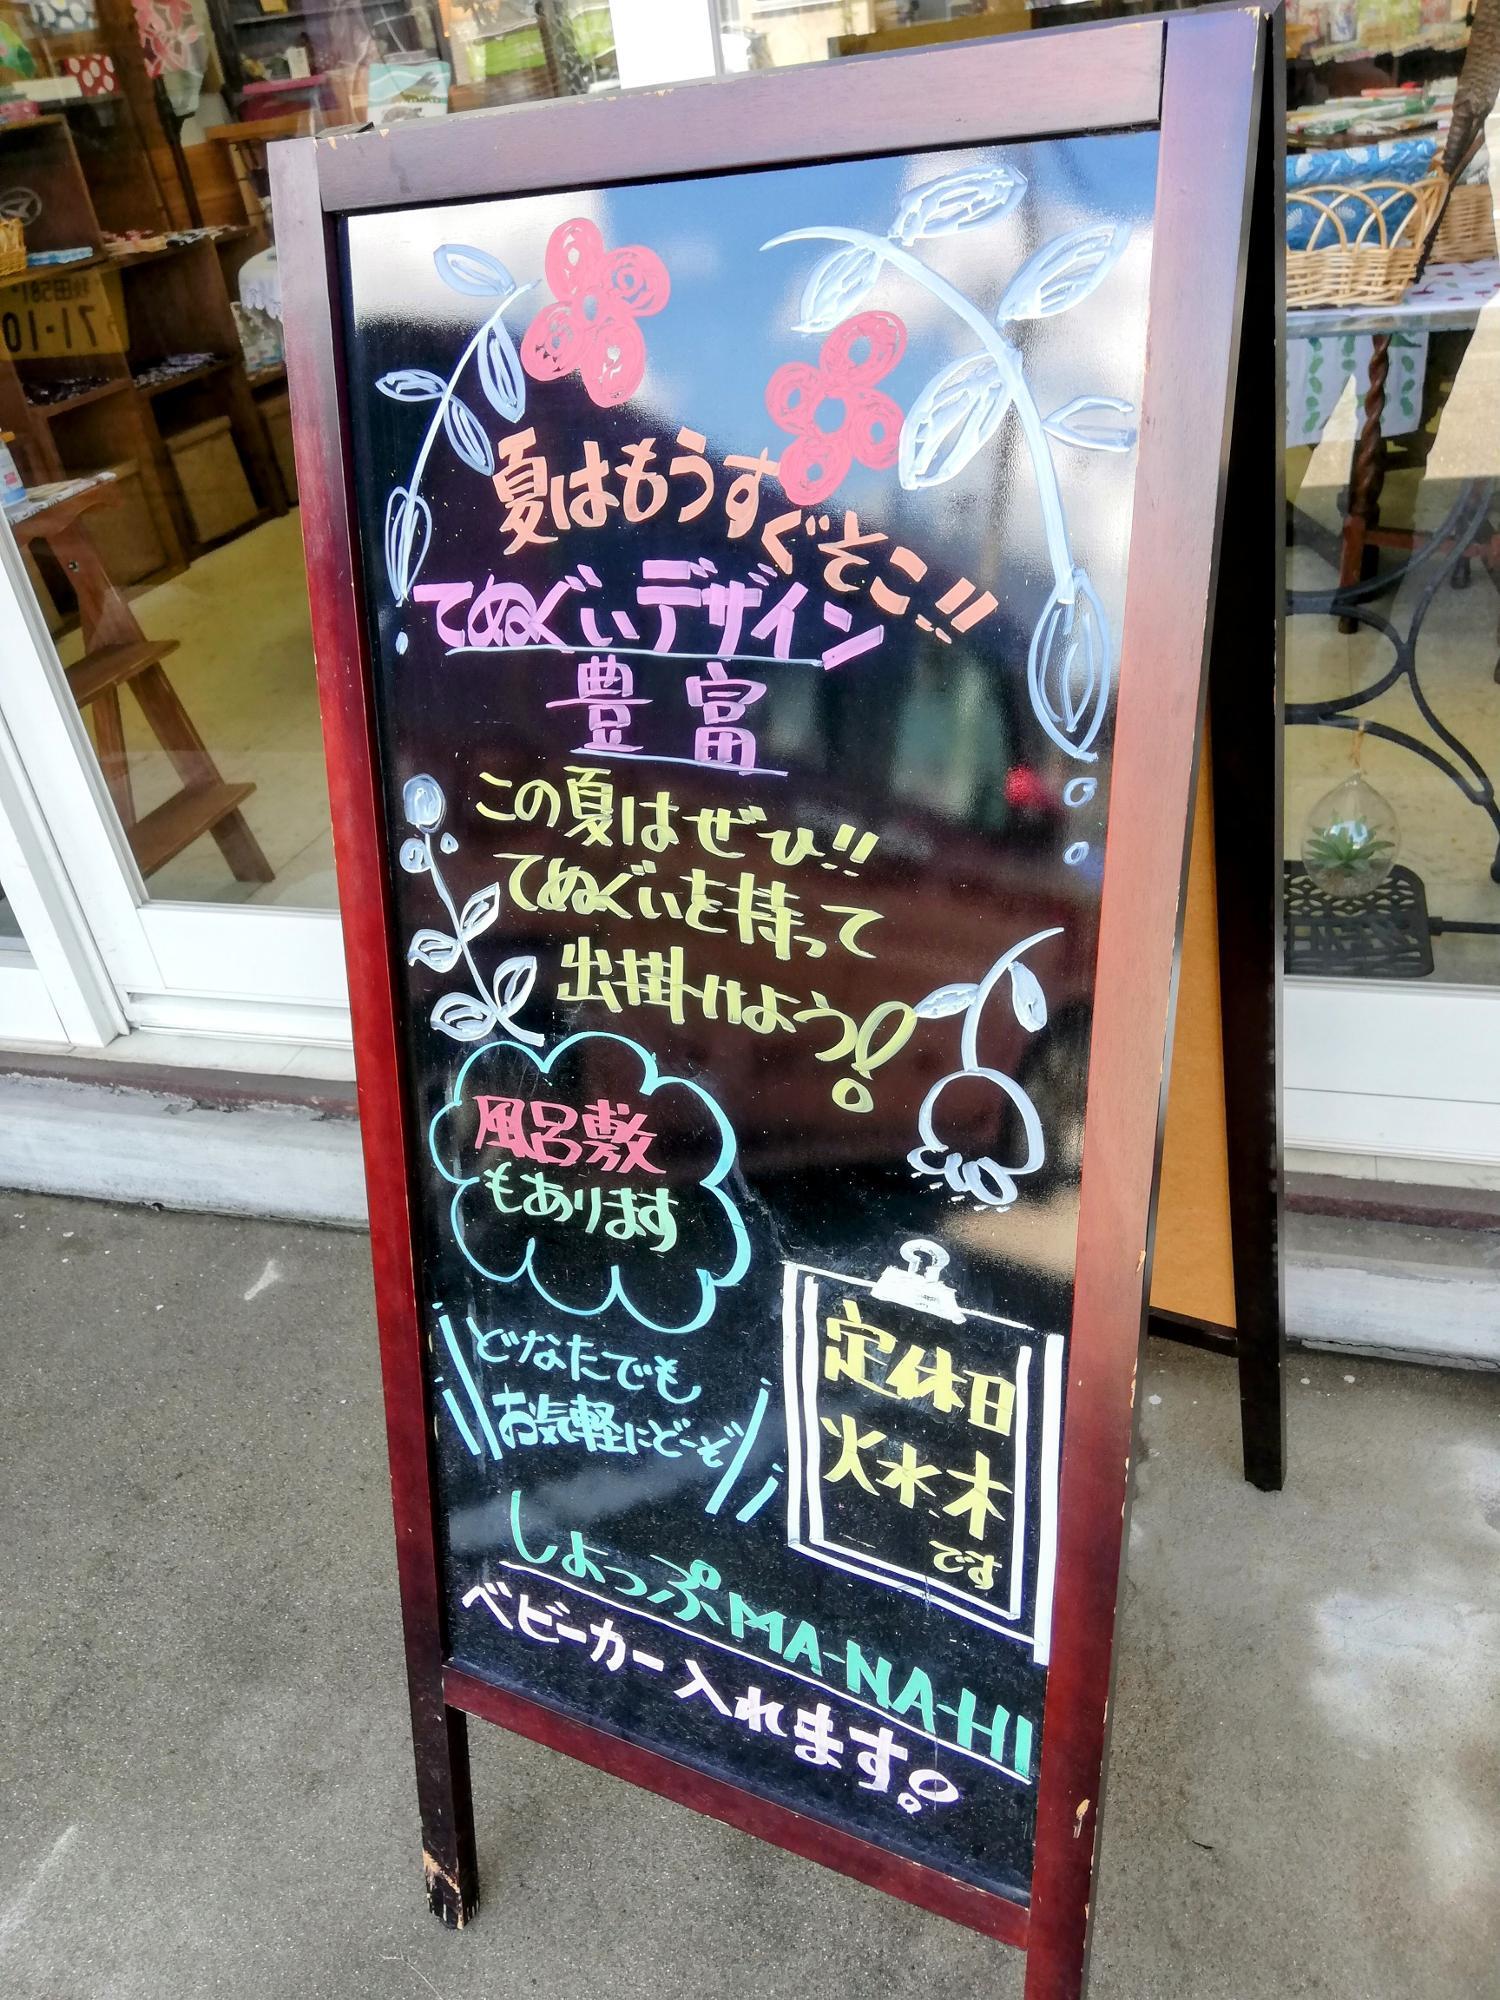 夏はもうすぐそこ!!
てぬぐぃデザイン
豊富
この夏はぜひ!!
てぬぐぃを持って
出掛けよう!
風呂敷
もあります
どなたでも
お気軽にどーぞ
定休日
火水木
です
しょっぷMA-NA-HI
ベビーカー入れます!